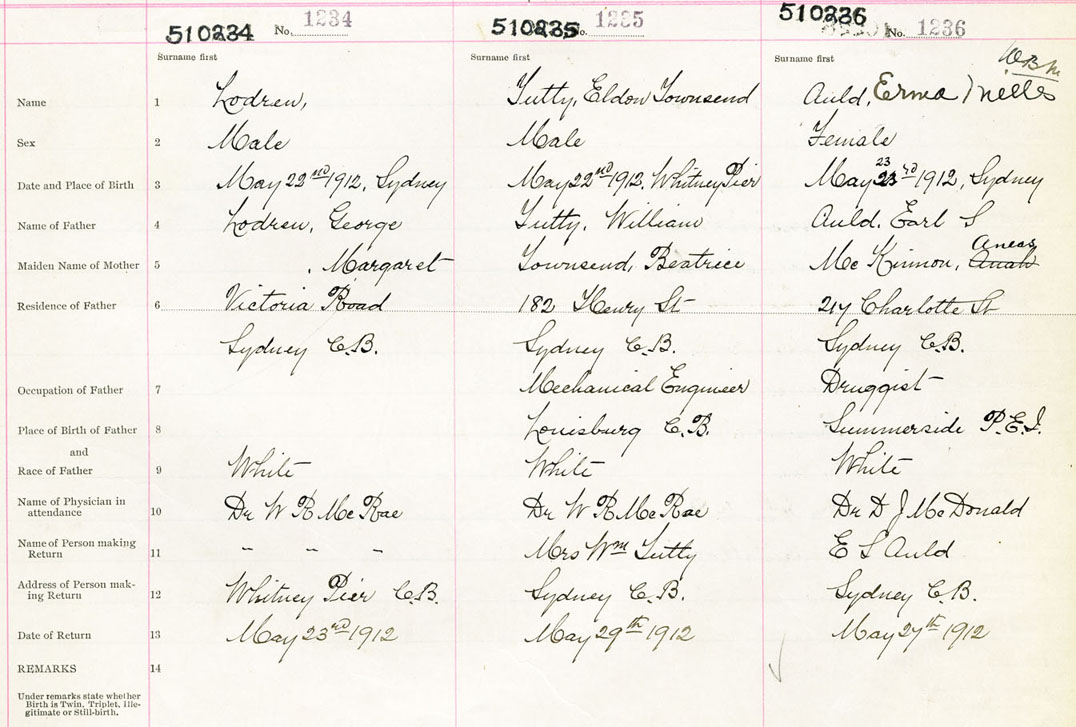 510234 No. 1234 510235 No. 1235 510236 No. 1236
Surname first Surname first Surname first W.B.M.
Name 1 Lodren, Tutty, Eldon Townsend Auld, Erma Nelles
Sex 2 Male Male Female
23
Date and Place of Birth 3 May 22nd 1912, Sydney May 22nd 1912, Whitney Pier May 23rd 1912, Sydney
Name of Father 4 Lodren, George Tutty, William Auld, Earl S
Aneas
Maiden Name of Mother 5 , Margaret Townsend, Beatrice Mc Kinnon,
Residence of Father 6 Victoria Road 182 Henry St 217 Charlotte St
Sydney C.B. Sydney C.B. Sydney C.B.
Occupation of Father 7 Mechanical Engineer Druggist
Place of Birth of Father 8 Louisburg C.B. Summerside P.E.I.
and
Race of Father 9 White White White
Name of Physician in
attendance 10 Dr W R Mc Rae Dr W R Mc Rae Dr D J Mc Donald
Name of Person making
Return 11 " " " Mrs Wm Tutty E S Auld
Address of Person mak-
ing Return 12 Whitney Pier C.B. Sydney C.B. Sydney C.B.
Date of Return 13 May 23rd 1912 May 29th 1912 May 27th 1912
REMARKS 14
Under remarks state whether
Birth is Twin, Triplet, Ille-
gitimate or Still-birth.